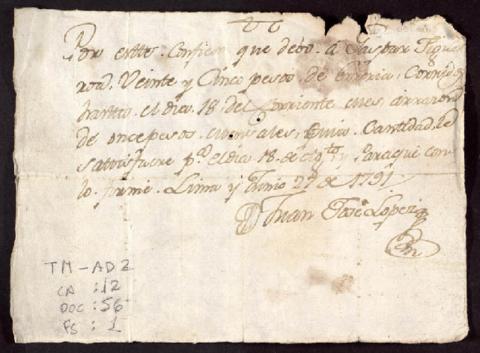 Por esttte. Confieso que debo. a Gaspar Figue
roa. Veinte y Cinco pesos de
hastta. el dia. 18. del Corriente mes, a razon
de once pesos. mensales, Cuia. Cantidad. le
satisfacre pa. el dia. 18. de y para que con
lo firme. Lima y Junio 27 de 1791
Juan Jose Lopez
TM-AD2
CA :12
DOC :56
FS : 1